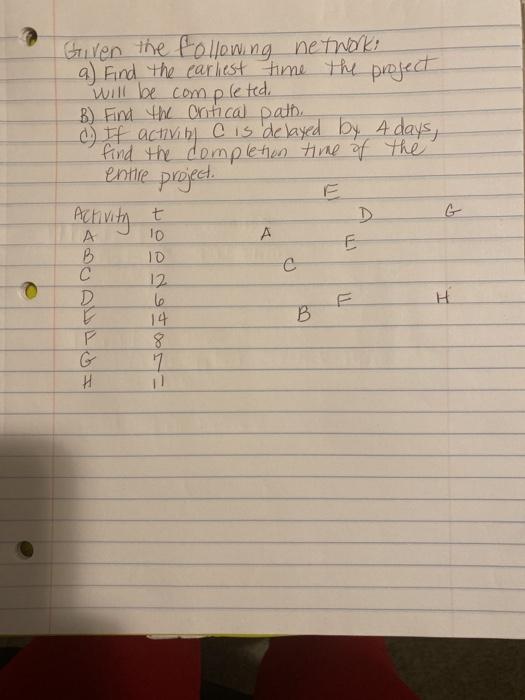 Given the following network:
a) Find the earliest time the project
will be completed.
B) Find the Critical path.
C) If activity C is delayed by 4 days,
find the completion time of the
entire project.
E
Activity t D G
A 10 A E
B 10 C
C 12
D 6 F H
E 14 B
F 8
G 7
H 11